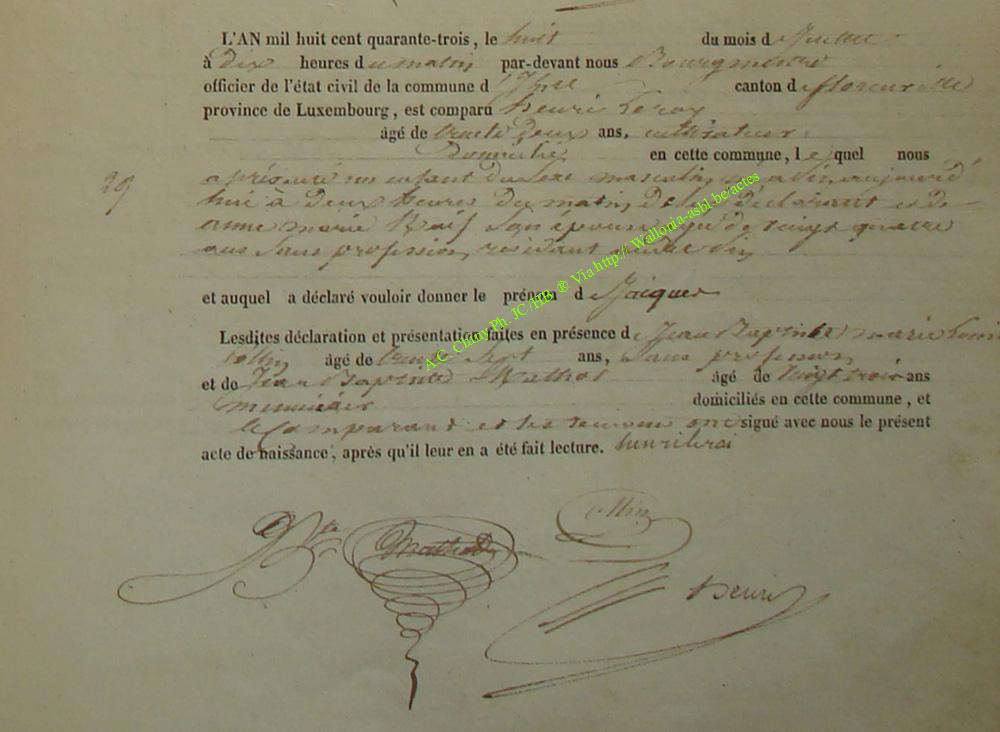 L'AN mil huit cent quarante-trois, le huit du mois de Juillet
à dix heures du matin par-devant nous Bourgmestre
officier de l'état civil de la commune d canton de florenville
province de Luxembourg, est comparu henri Leroy
âgé de trente deux ans, cultivateur
domicilié en cette commune, lequel nous
29
a présenté un enfant du sexe masculin né à aujourd'
hui à deux heures du matin de lui déclarant et de
anne marie son épouse agé de vingt quatre
ans sans profession, résidant
et auquel a déclaré vouloir donner le prénom de Jacques
Lesdites déclaration et présentation faites en présence de Jean Baptiste marie
collin âgé de trente sept ans, sans profession
et de Jean Baptiste Mathot âgé de vingt trois ans
menuisier domiciliés en cette commune, et
le Comparant et les temoins ont signé avec nous le présent
acte de naissance, après qu'il leur en a été fait lecture. henri leroi
JBte Mathot
collin
henri
A.C. Chiny Ph. JC /HB. ® Via http://Wallonia-asbl.be/actes